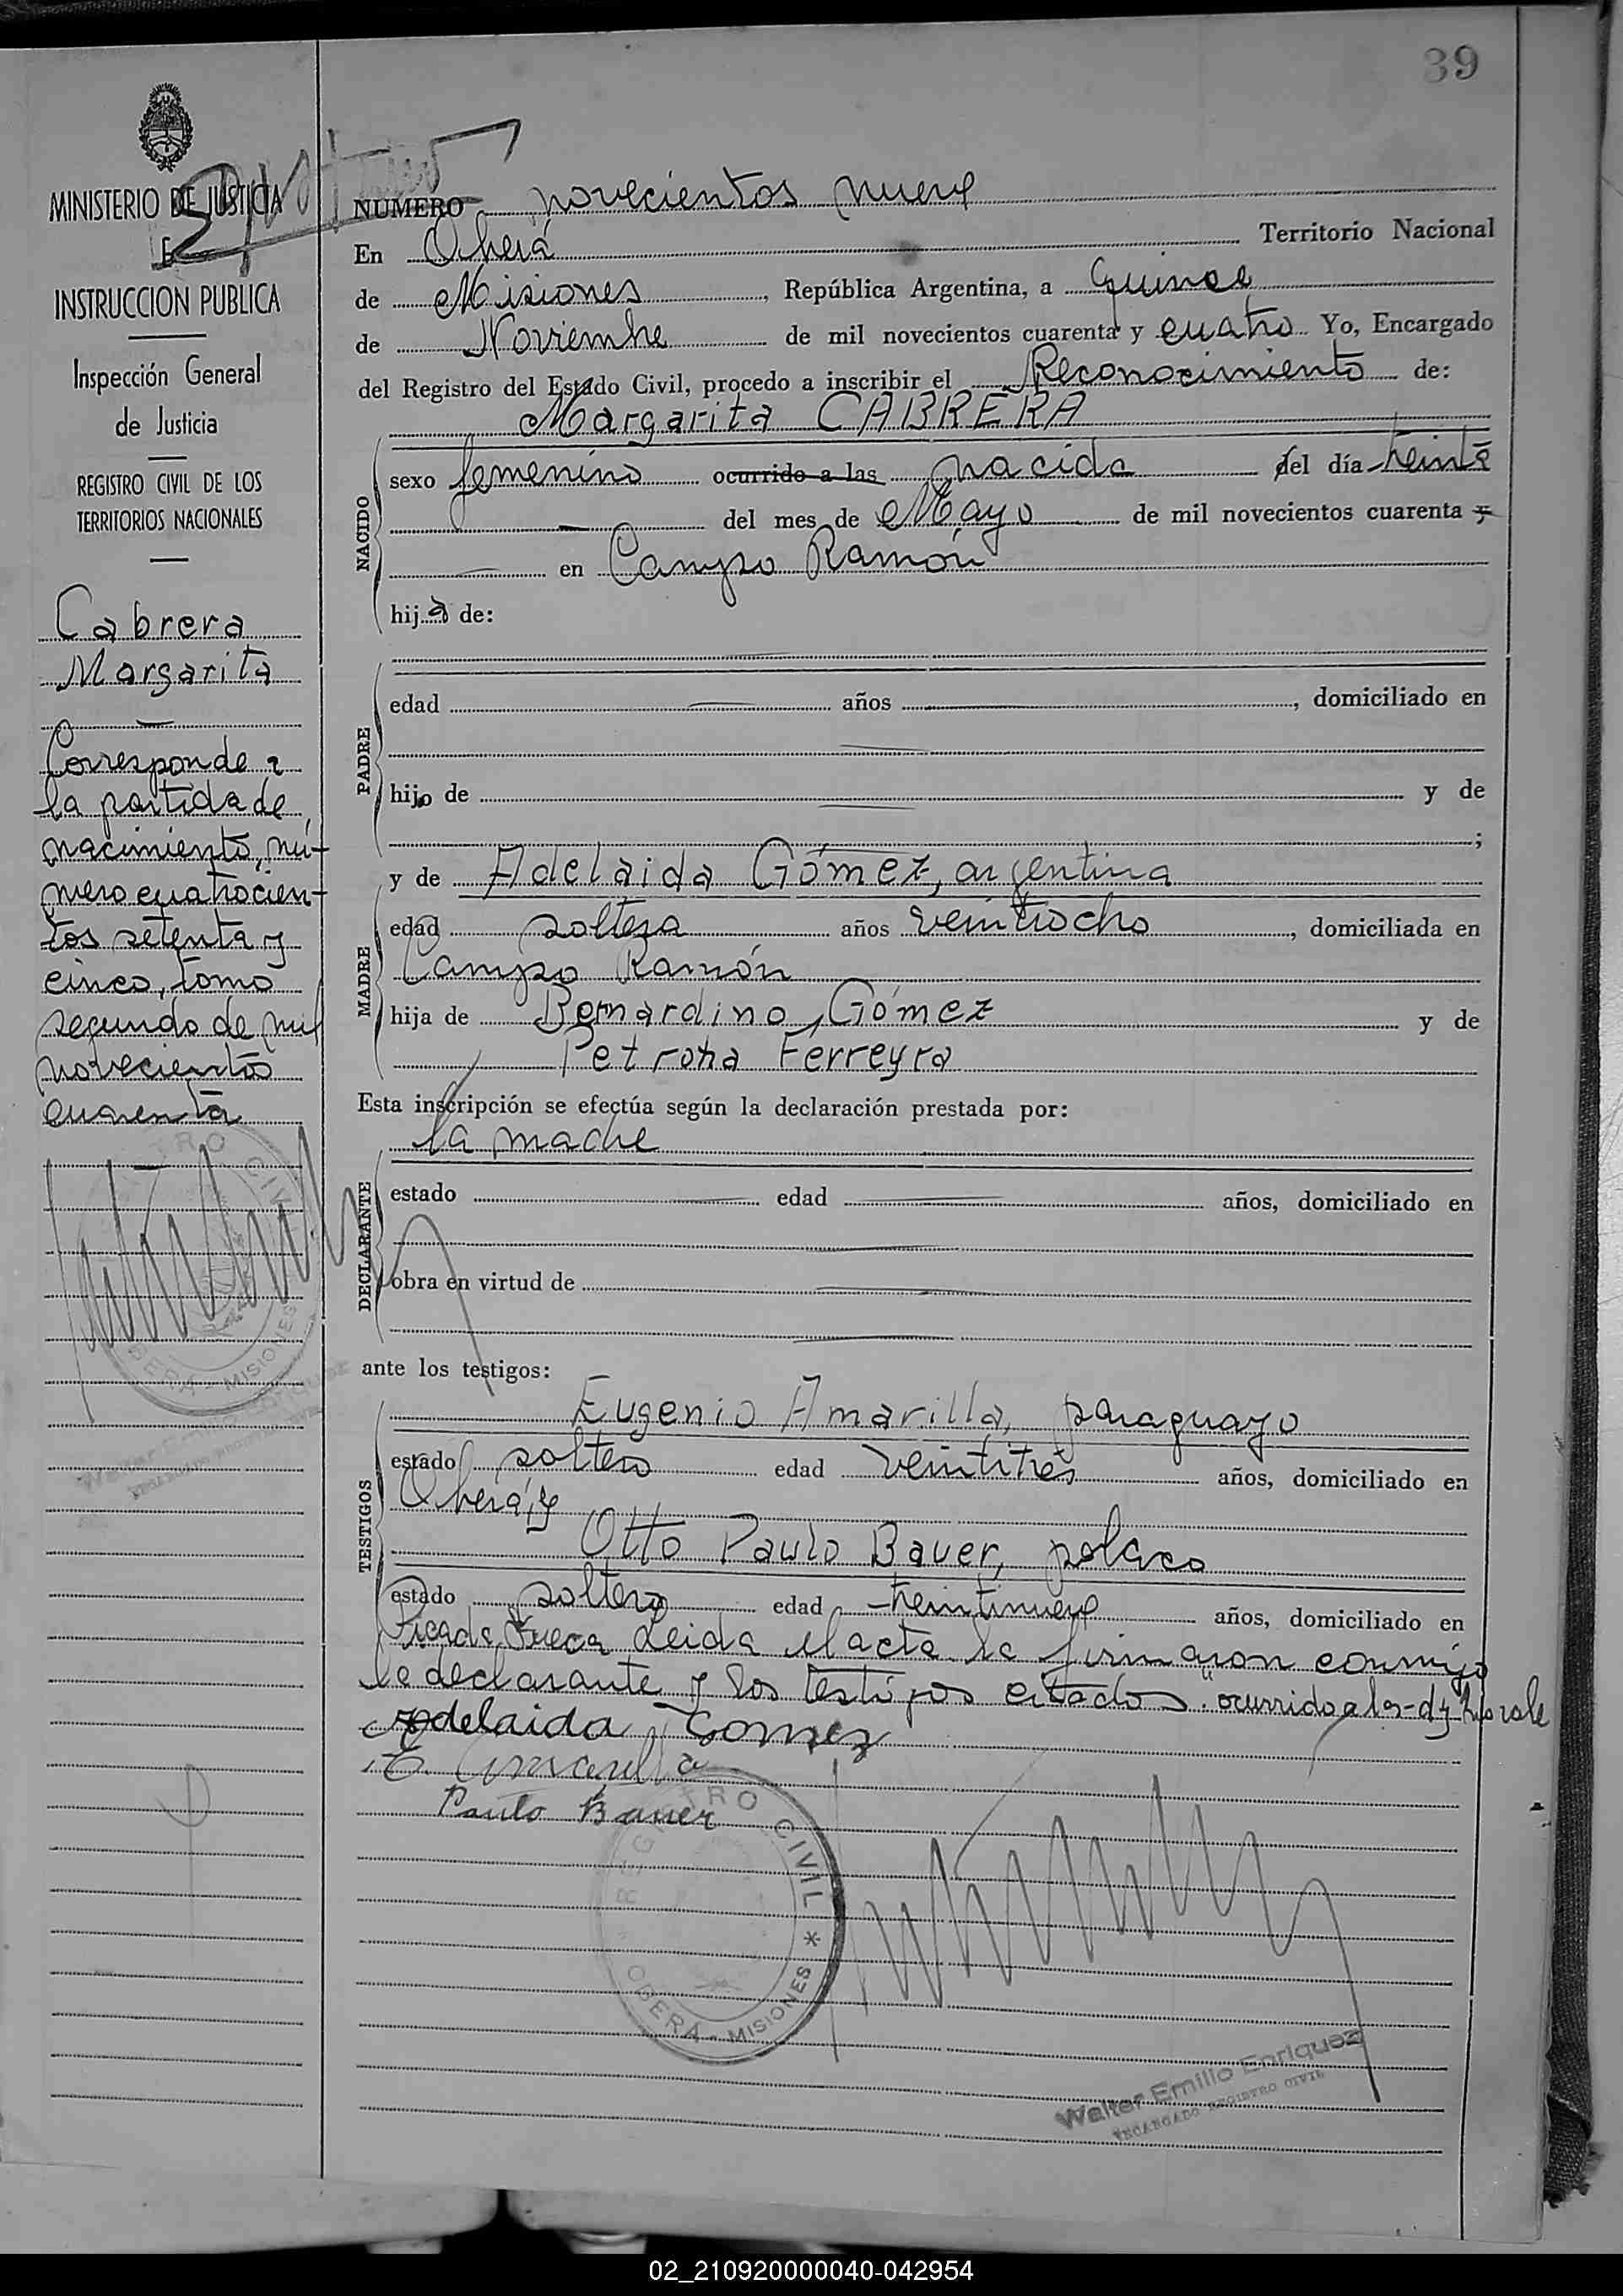 39
MINISTERIO DE JUSTICIA
E
INSTRUCCION PUBLICA
Inspección General
de Justicia
REGISTRO CIVIL DE LOS
TERRITORIOS NACIONALES
Cabrera
Margarita
Corresponde a
la partida de
nacimiento, nú-
mero cuatrocien-
tos setenta y
cinco, tomo
segundo de mil
novecientos
cuarenta
NUMERO novecientos nueve
En Oberá Territorio Nacional
de Misiones, República Argentina, a Quince
de Noviembre de mil novecientos cuarenta y cuatro Yo, Encargado
del Registro del Estado Civil, procedo a inscribir el Reconocimiento de:
Margarita CABRERA
NACIDO
sexo femenino ocurrido a las nacida del día treinta
del mes de Mayo de mil novecientos cuarenta y
en Campo Ramón
hija de:
PADRE
edad años, domiciliado en
hijo de y de
;
MADRE
y de Adelaida Gómez, argentina
edad soltera años veintiocho, domiciliada en
Campo Ramón
hija de Bernardino Gómez y de
Petrona Ferreyra
Esta inscripción se efectúa según la declaración prestada por:
la madre
DECLARANTE
estado edad años, domiciliado en
obra en virtud de
ante los testigos:
TESTIGOS
Eugenio Amarilla, paraguayo
estado soltero edad veintitres años, domiciliado en
Oberá, y
Otto Paulo Bauer, polaco
estado soltero edad treintinueve años, domiciliado en
Picada Sueca Leida el acta la firmaron conmigo
la declarante y los testigos citados "ocurrido a las-d y
Adelaida Gomez
E. Amarilla
Paulo Bauer
REGISTRO CIVIL
OBERÁ - MISIONES
Walter Emilio Enriquez
ENCARGADO REGISTRO CIVIL
02_210920000040-042954